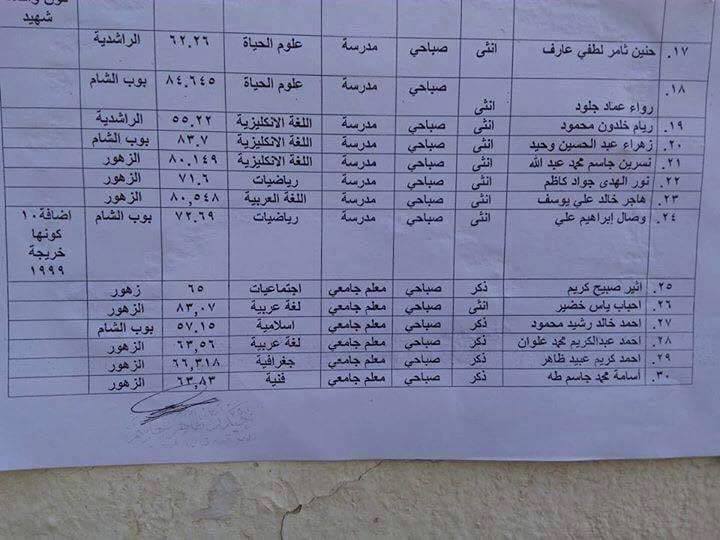 شهيد
١٧. حنين ثامر لطفي عارف انثى صباحي مدرسة علوم الحياة ٦٢.٢٦ الراشدية
١٨. رواء عماد جلود انثى صباحي مدرسة علوم الحياة ٨٤.٦٤٥ بوب الشام
١٩. ريام خلدون محمود انثى صباحي مدرسة اللغة الانكليزية ٥٥.٢٢ الراشدية
٢٠. زهراء عبد الحسين وحيد انثى صباحي مدرسة اللغة الانكليزية ٨٣.٧ بوب الشام
٢١. نسرين جاسم محمد عبد الله انثى صباحي مدرسة اللغة الانكليزية ٨٠.١٤٩ الزهور
٢٢. نور الهدى جواد كاظم انثى صباحي مدرسة رياضيات ٧١.٦ الزهور
٢٣. هاجر خالد علي يوسف انثى صباحي مدرسة اللغة العربية ٨٠.٥٤٨ الزهور
٢٤. وصال إبراهيم علي انثى صباحي مدرسة رياضيات ٧٢.٦٩ بوب الشام اضافة ١٠
كونها
خريجة
١٩٩٩
٢٥. اثير صبيح كريم ذكر صباحي معلم جامعي اجتماعيات ٦٥ زهور
٢٦. احباب ياس خضير انثى صباحي معلم جامعي لغة عربية ٨٣,٠٧ الزهور
٢٧. احمد خالد رشيد محمود ذكر صباحي معلم جامعي اسلامية ٥٧.١٥ بوب الشام
٢٨. احمد عبدالكريم محمد علوان ذكر صباحي معلم جامعي لغة عربية ٦٣,٥٦ الزهور
٢٩. احمد كريم عبيد ظاهر ذكر صباحي معلم جامعي جغرافية ٦٦,٣١٨ الزهور
٣٠. أسامة محمد جاسم طه ذكر صباحي معلم جامعي فنية ٦٣,٨٣ الزهور